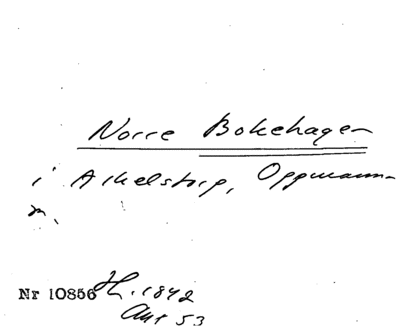 Norre Bokehagen
i Arkelstorp, Oppmanna-
n.
Nr 10856 H. 1842
Akt 53